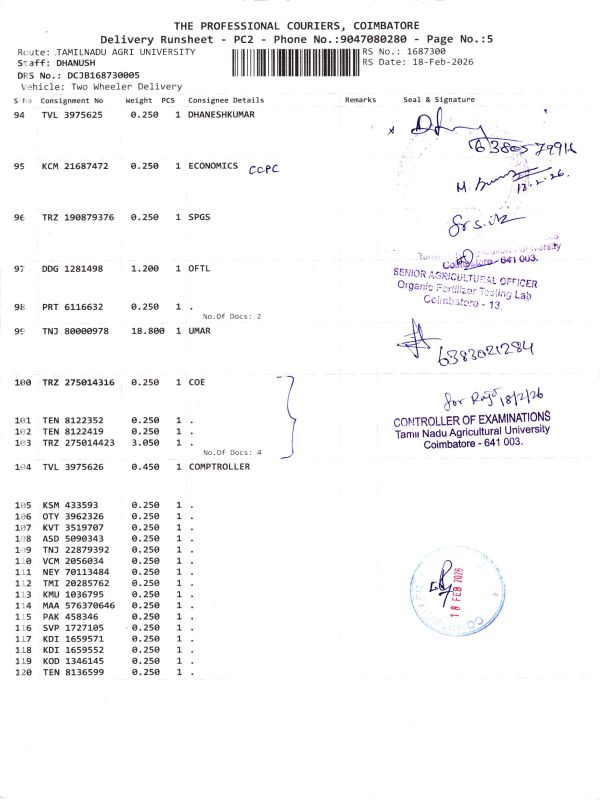 THE PROFESSIONAL COURIERS, COIMBATORE
Delivery Runsheet - PC2 - Phone No.:9047080280 - Page No.:5
Route: TAMILNADU AGRI UNIVERSITY
RS No.: 1687300
Staff: DHANUSH
RS Date: 18-Feb-2026
DRS No.: DCJB168730005
Vehicle: Two Wheeler Delivery
S No Consignment No Weight PCS Consignee Details Remarks Seal & Signature
94 TVL 3975625 0.250 1 DHANESHKUMAR
95 KCM 21687472 0.250 1 ECONOMICS CCPC
18.2.26.
96 TRZ 190879376 0.250 1 SPGS
97 DDG 1281498 1.200 1 OFTL
Coimbatore - 641 003.
SENIOR AGRICULTURAL OFFICER
Organic Fertilizer Testing Lab
Coimbatore - 13.
98 PRT 6116632 0.250 1 .
No.Of Docs: 2
99 TNJ 80000978 18.800 1 UMAR
6383021284
100 TRZ 275014316 0.250 1 COE
for Raj 18/2/26
CONTROLLER OF EXAMINATIONS
Tamil Nadu Agricultural University
Coimbatore - 641 003.
101 TEN 8122352 0.250 1 .
102 TEN 8122419 0.250 1 .
103 TRZ 275014423 3.050 1 .
No.Of Docs: 4
104 TVL 3975626 0.450 1 COMPTROLLER
105 KSM 433593 0.250 1 .
106 OTY 3962326 0.250 1 .
107 KVT 3519707 0.250 1 .
108 ASD 5090343 0.250 1 .
109 TNJ 22879392 0.250 1 .
110 VCM 2056034 0.250 1 .
111 NEY 70113484 0.250 1 .
112 TMI 20285762 0.250 1 .
113 KMU 1036795 0.250 1 .
114 MAA 576370646 0.250 1 .
115 PAK 458346 0.250 1 .
116 SVP 1727105 0.250 1 .
117 KDI 1659571 0.250 1 .
118 KDI 1659552 0.250 1 .
119 KOD 1346145 0.250 1 .
120 TEN 8136599 0.250 1 .
18 FEB 2026